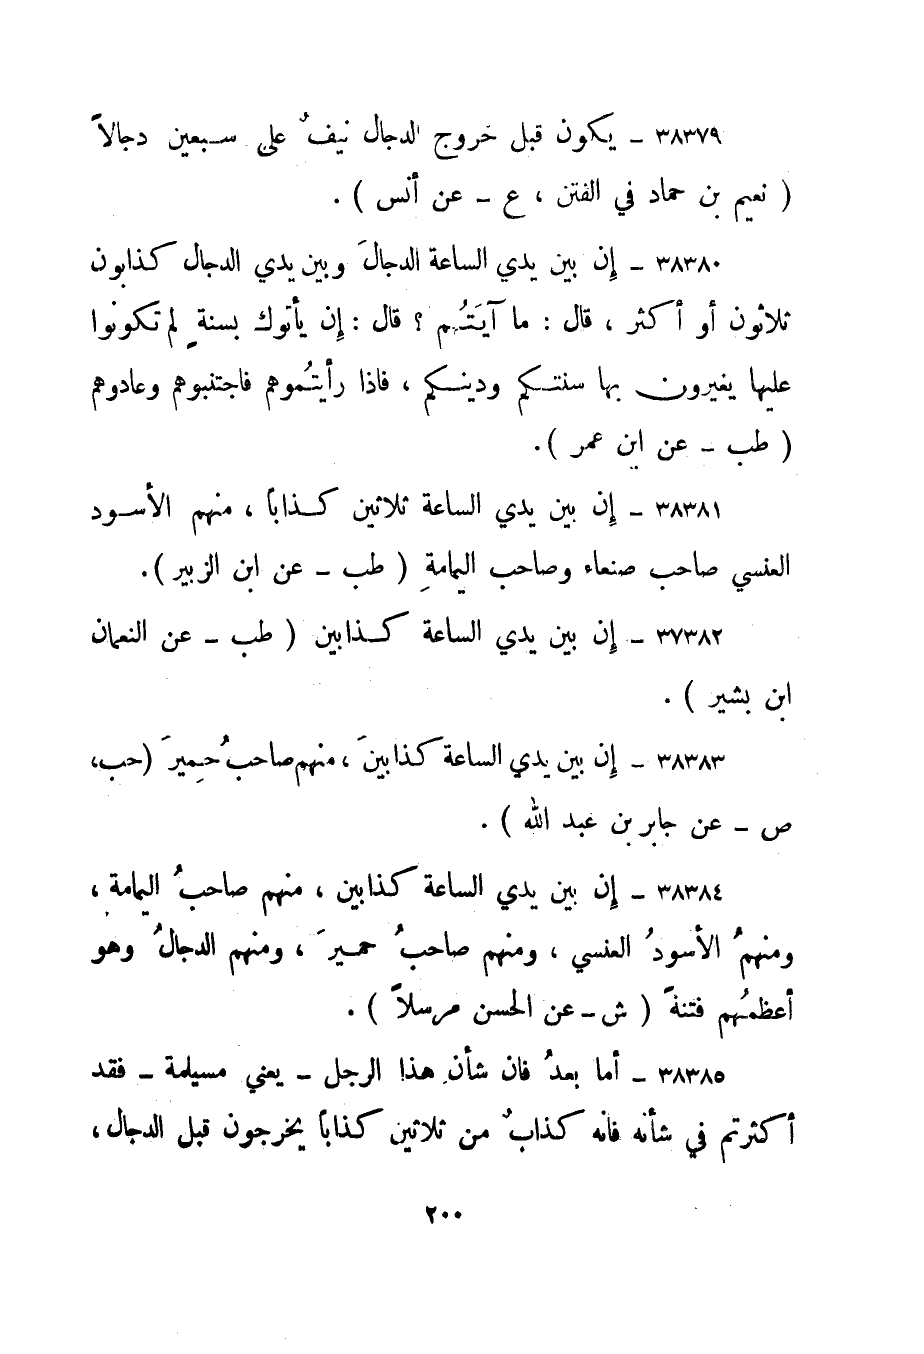 ٣٨٣٧٩ ـ يكون قبل خروج الدجال نيفٌ على سبعين دجالاً
( نعيم بن حماد في الفتن ، ع ـ عن أنس ) .
٣٨٣٨٠ ـ إن بين يدي الساعة الدجالَ وبين يدي الدجال كذابون
ثلاثون أو أكثر ، قال : ما آيَتُهم ؟ قال : إن يأتوك بسنةٍ لم تكونوا
عليها يغيرون بها سنتكم ودينكم ، فاذا رأيتُموهم فاجتنبوهم وعادوهم
( طب ـ عن ابن عمر ) .
٣٨٣٨١ ـ إن بين يدي الساعة ثلاثين كذاباً ، منهم الأسود
العنسي صاحب صنعاء وصاحب اليمامةِ ( طب ـ عن ابن الزبير ) .
٣٧٣٨٢ ـ إن بين يدي الساعة كذابين ( طب ـ عن النعمان
ابن بشير ) .
٣٨٣٨٣ ـ إن بين يدي الساعة كذابينَ ، منهم صاحبُ حِميرَ (حب،
ص ـ عن جابر بن عبد الله ) .
٣٨٣٨٤ ـ إن بين يدي الساعة كذابين ، منهم صاحبُ اليمامة ،
ومنهمُ الأسودُ العنسي ، ومنهم صاحبُ حميرَ ، ومنهم الدجالُ وهو
أعظمُهم فتنةً ( ش ـ عن الحسن مرسلاً ) .
٣٨٣٨٥ ـ أما بعدُ فان شأن هذا الرجل ـ يعني مسيلمة ـ فقد
أكثرتم في شأنه فانه كذابٌ من ثلاثين كذاباً يخرجون قبل الدجال ،
٢٠٠